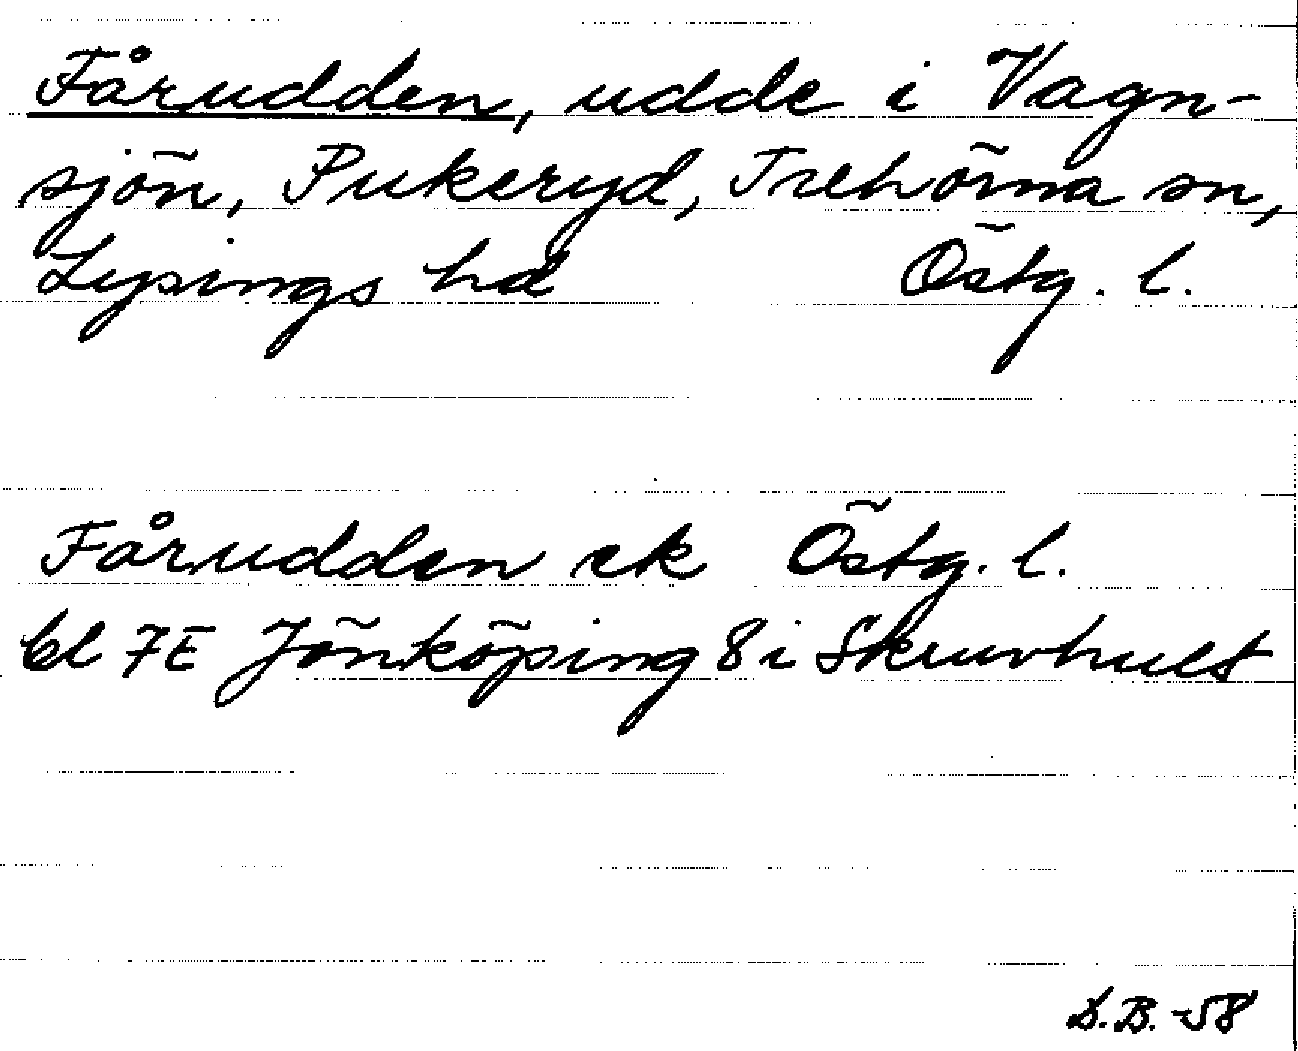 Fårudden, udde i Vagn-
sjön, Pukeryd, Trehörna sn,
Lysings hd Östg. l.
Fårudden ek Östg. l.
bl 7E Jönköping 8 i Skruvhult
D.B. -58